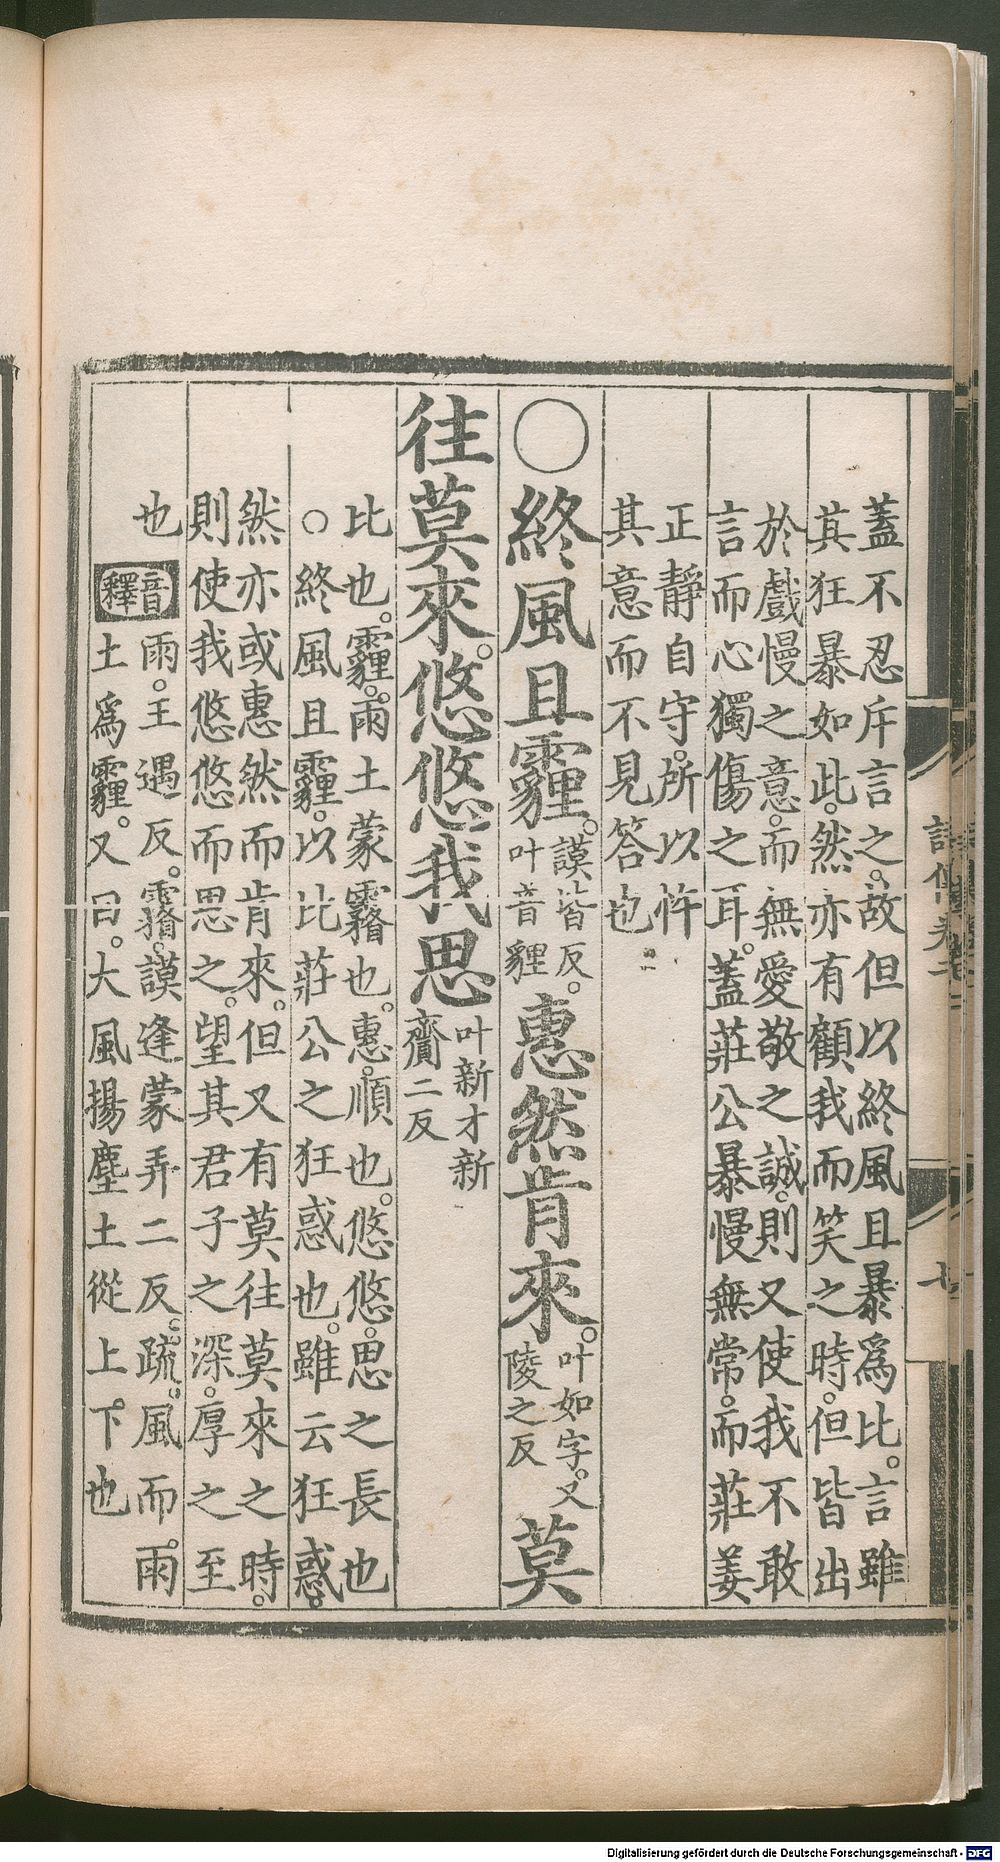 蓋不忍斥言之。故但以終風且暴為比。言雖
其狂暴如此。然亦有顧我而笑之時。但皆出
於戲慢之意。而無愛敬之誠。則又使我不敢
言而心獨傷之耳。蓋莊公暴慢無常。而莊姜
正靜自守。所以忤
其意而不見答也
○終風且霾。謨皆反。叶音貍惠然肯來。叶如字。又陵之反莫
往莫來。悠悠我思叶新才新齎二反
比也。霾。雨土蒙霧也。惠。順也。悠悠。思之長也
○終風且霾。以比莊公之狂惑也。雖云狂惑。
然亦或惠然而肯來。但又有莫往莫來之時。
則使我悠悠而思之。望其君子之深。厚之至
也音釋雨。王遇反。霿。謨逢蒙弄二反。疏。風而雨
土為霾。又曰。大風揚塵土從上下也
詩傳卷二
七
Digitalisierung gefördert durch die Deutsche Forschungsgemeinschaft - DFG